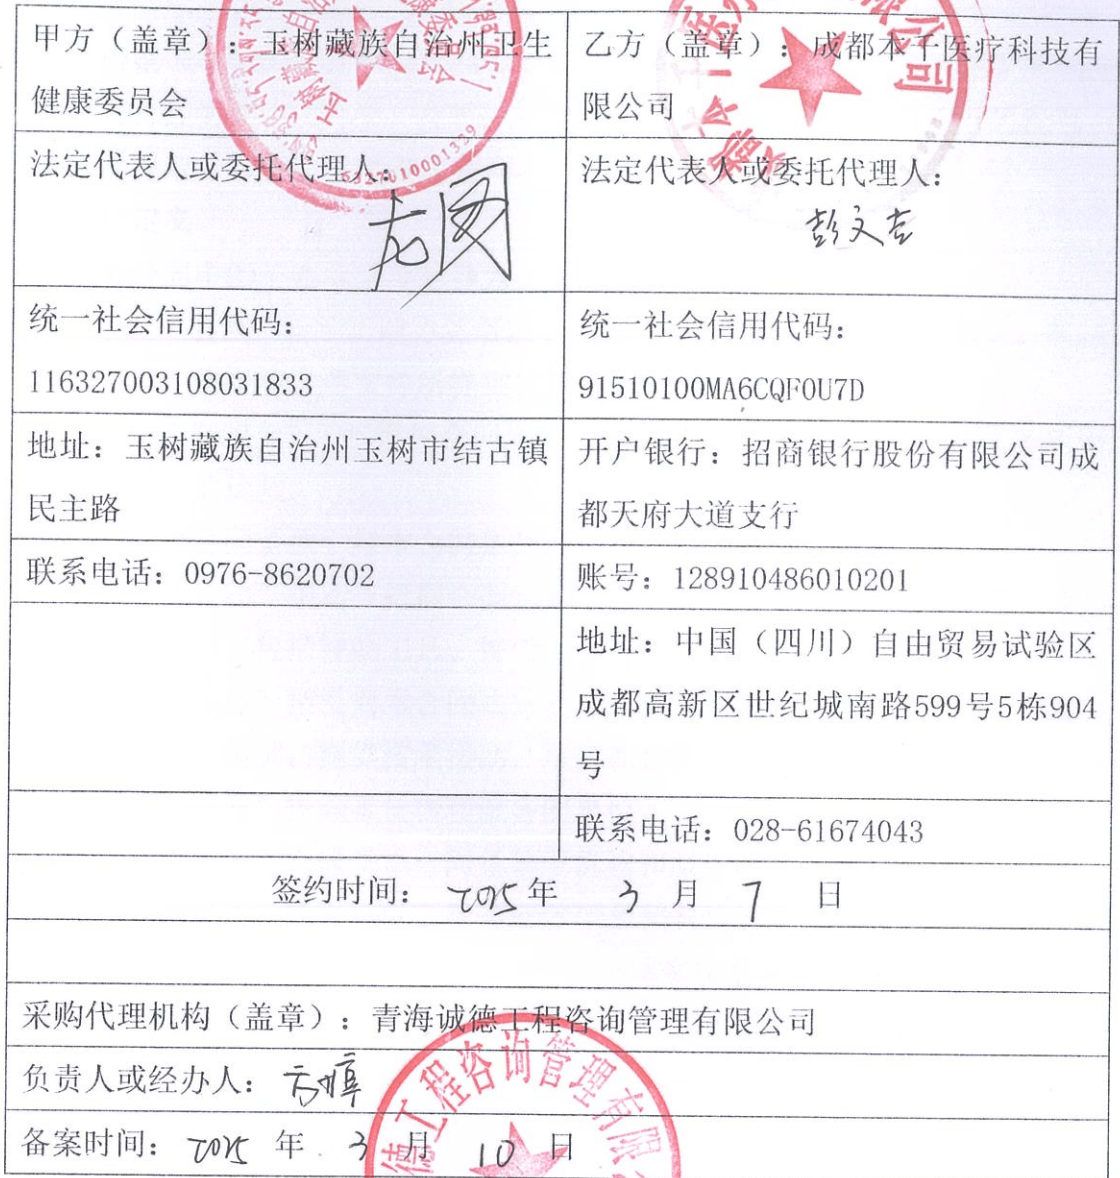 甲方（盖章）：玉树藏族自治州卫生
健康委员会
乙方（盖章）：成都本千医疗科技有
限公司
法定代表人或委托代理人：
法定代表人或委托代理人：
彭文吉
统一社会信用代码：
116327003108031833
统一社会信用代码：
91510100MA6CQF0U7D
地址：玉树藏族自治州玉树市结古镇
民主路
开户银行：招商银行股份有限公司成
都天府大道支行
联系电话：0976-8620702
账号：128910486010201
地址：中国（四川）自由贸易试验区
成都高新区世纪城南路599号5栋904
号
联系电话：028-61674043
签约时间： 2025年 3 月 7 日
采购代理机构（盖章）：青海诚德工程咨询管理有限公司
负责人或经办人：
备案时间： 2025 年 3 月 10 日
德工程咨询管理有限
6327010001339